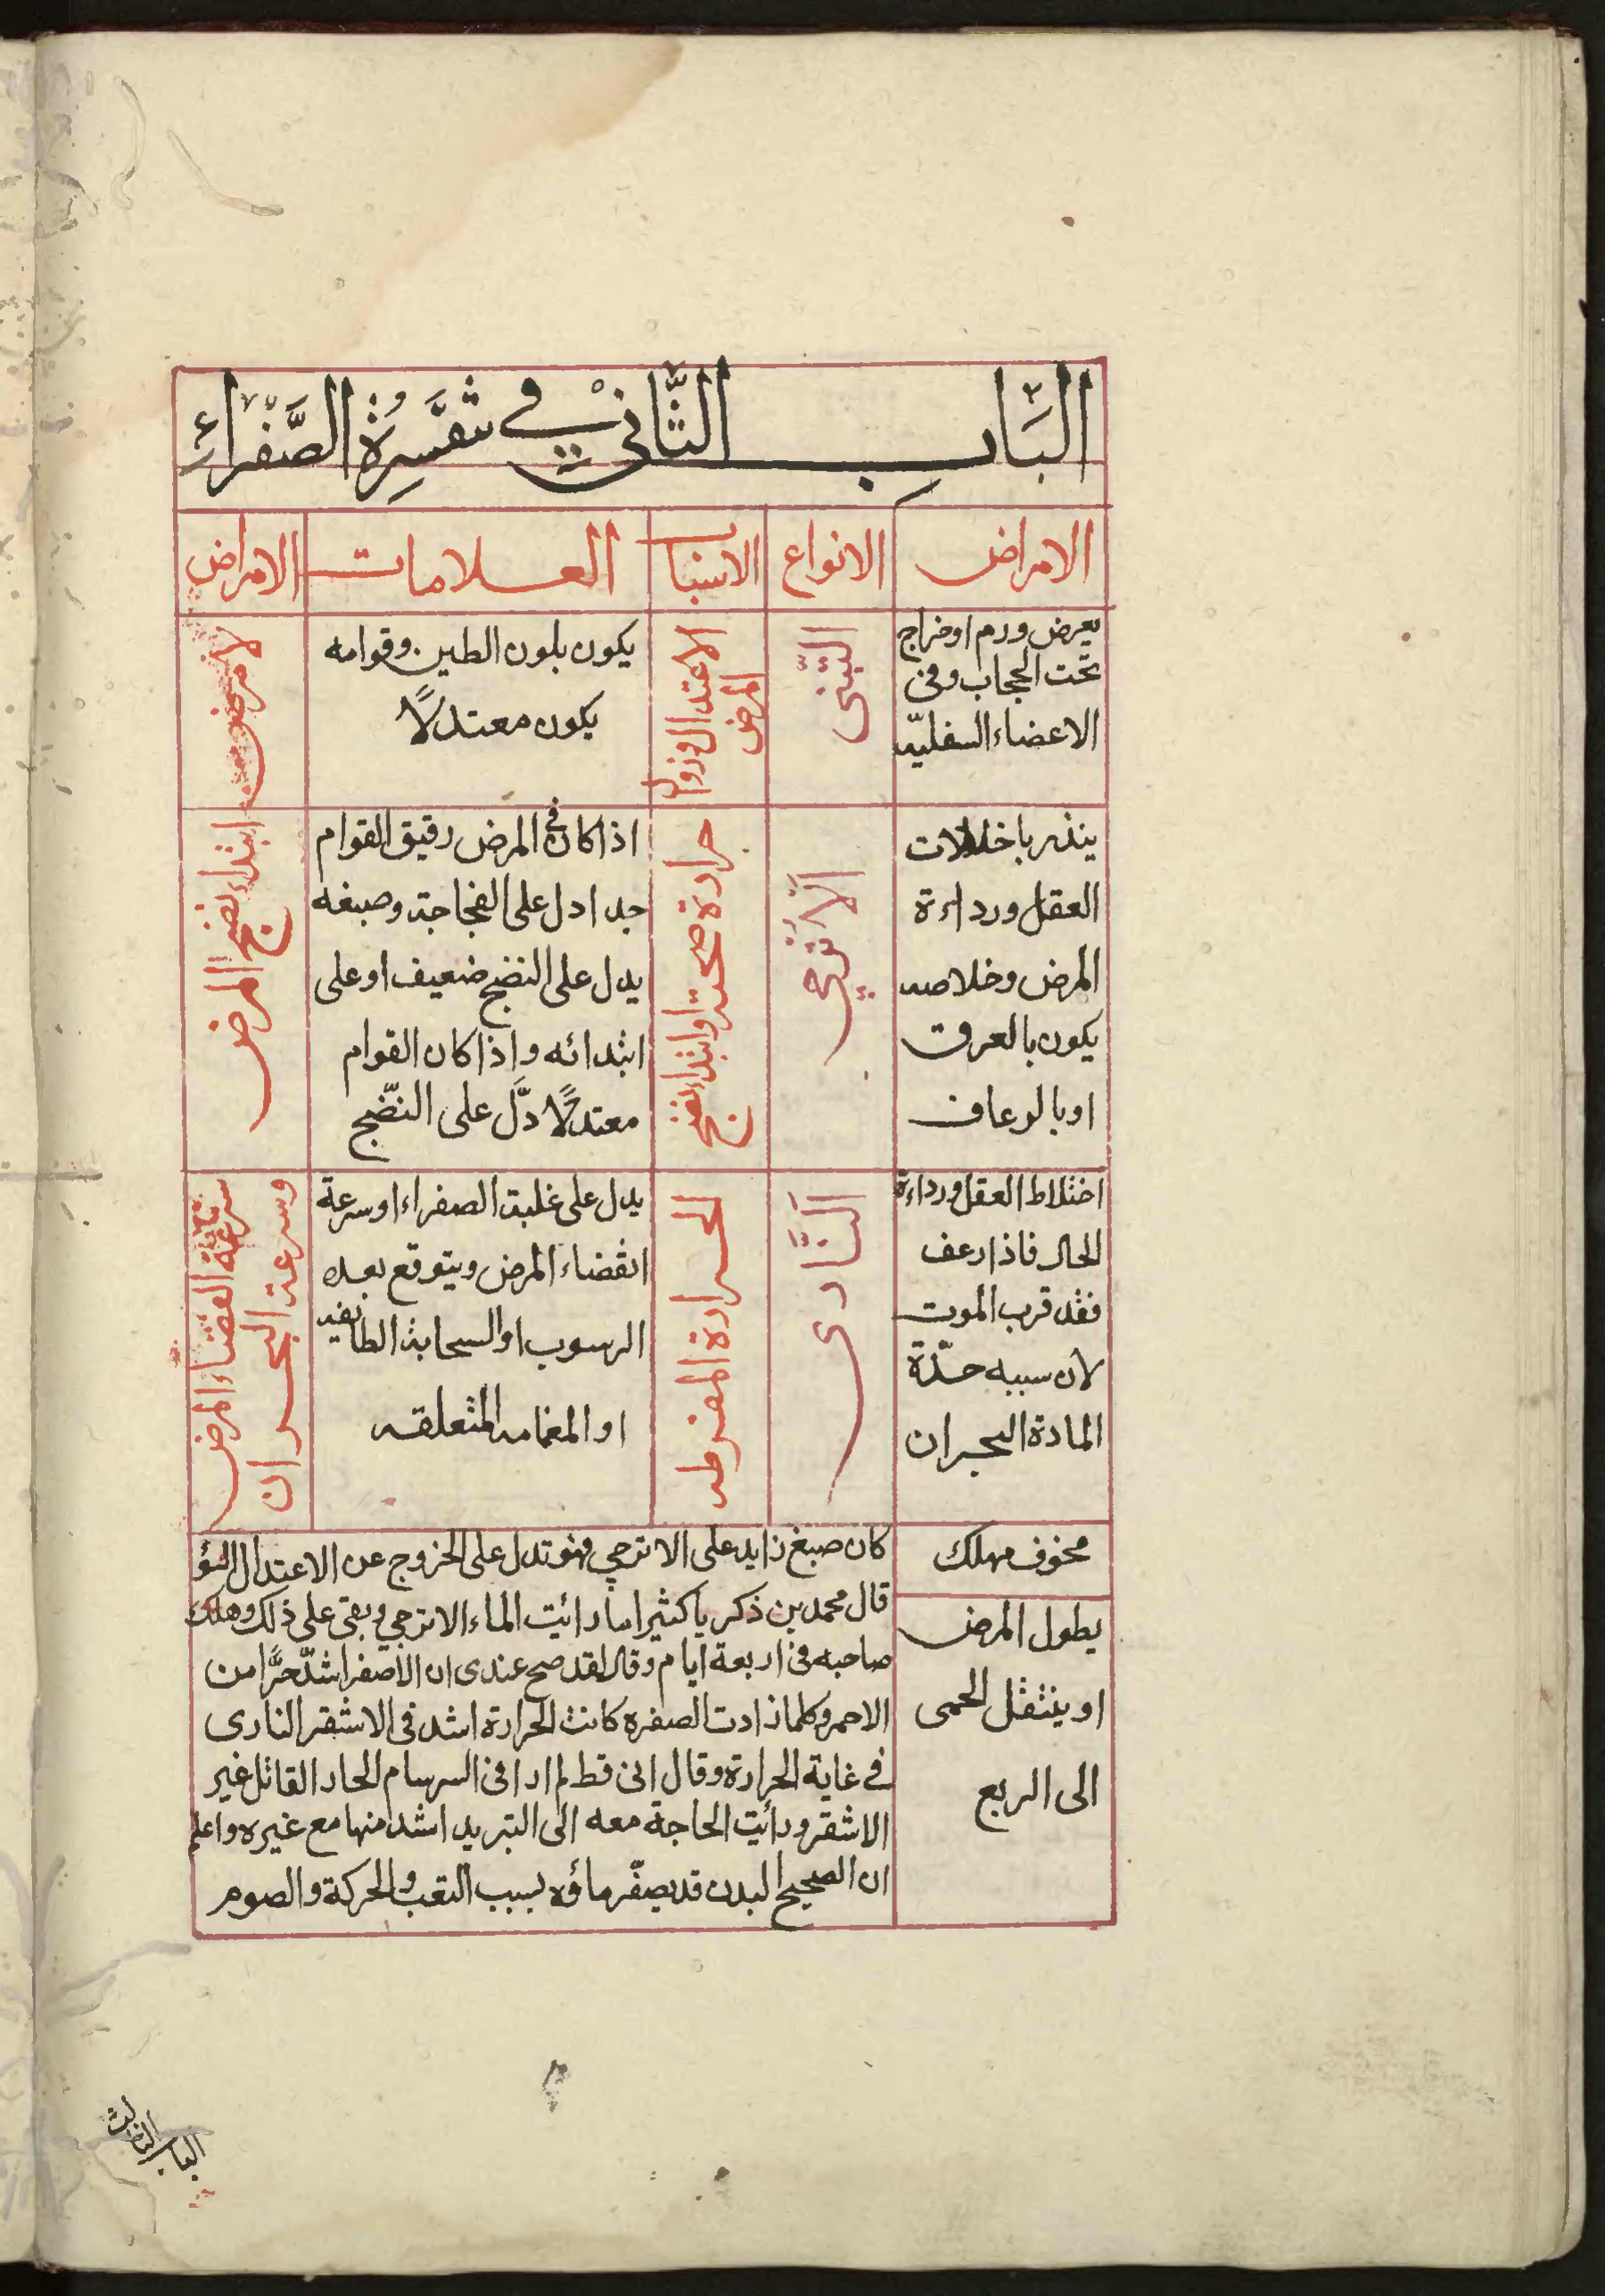 الباب الثاني في تفسرة الصفراء
الامراض
الانواع
الاسباب
العلامات
الامراض
يعرض ورم اوخراج
تحت الحجاب وفى
الاعضاء السفليه
التبنى
الاعتدال وزوال
المرض
يكون بلون الطين وقوامه
يكون معتدلًا
لا مرض
ينذر باختلالات
العقل ورداءة
المرض وخلاصه
يكون بالعرق
اوبالرعاف
الأترجي
حرارة صحته اوابتداء نضج
اذاكان فى المرض رقيق القوام
جدا دل على الفجاجة وصبغه
يدل على النضج ضعيف اوعلى
ابتدائه واذاكان القوام
معتدلًا دلَّ على النضّج
ابتداء نضج المرض
اختلاط العقل ورداءة
الحال فاذا رعف
فقد قرب الموت
لان سببه حدّة
المادة البحران
النَّارى
الحرارة المفرطه
يدل على غلبة الصفراء اوسرعة
انقضاء المرض ويتوقع بعده
الرسوب اوالسحابة الطافيه
او الغمامه المتعلقه
سرعة انقضاء المرض
وسرعة البحران
مخوف مهلك
يطول المرض
او ينتقل الحمى
الى الربع
كان صبغ زايد على الاترجي فهو تدل على الخروج عن الاعتدال
قال محمد بن ذكريا كثيرا ما رائيت الماء الاترجي وبقى على ذلك وهلك
صاحبه فى اربعة ايام وقال لقد صح عندى ان الأصفر اشدّ حرًّا من
الاحمر وكلما زادت الصفره كانت الحرارة اشد فى الاشقر النارى
فى غاية الحرارة وقال انى قط لم ارا فى السرسام الحاد القاتل غير
الاشقر ورأئيت الحاجة معه الى التبريد اشد منها مع غيره واعلم
ان الصحيح البدن قد يصفّر ماؤه بسبب التعب والحركة والصوم
الباب الثالث